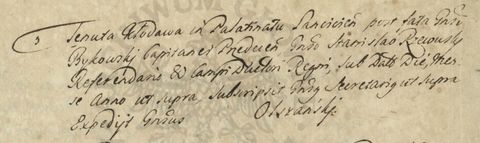 3 Tenuta Kłodawa in Palatinatu Lancicien post fata Gndi
Bykowski Capitanei Predecen Gndo Stanislao Rzewuski
Referendario & Campi Ductori Regni, sub Datt Die, Men
se Anno ut supra, subscripsit Gndq Secretariq ut supra
Expedijt Gndus Olszański